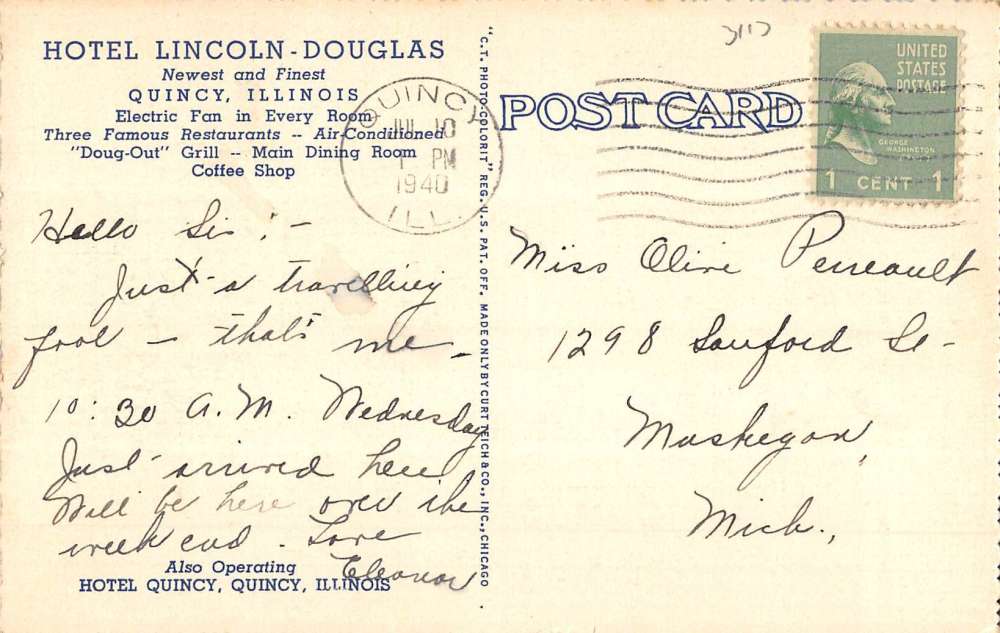 HOTEL LINCOLN-DOUGLAS
Newest and Finest
QUINCY, ILLINOIS
Electric Fan in Every Room
Three Famous Restaurants -- Air-Conditioned
"Doug-Out" Grill -- Main Dining Room
Coffee Shop
Hello Sis! -
Just a travelling
fool - that's me -
10:30 A.M. Wednesday
Just arrived here
Will be here over the
week end. Love
Eleanor
Also Operating
HOTEL QUINCY, QUINCY, ILLINOIS
"C.T. PHOTO-COLORIT" REG. U.S. PAT. OFF. MADE ONLY BY CURT TEICH & CO., INC., CHICAGO
QUINCY
JUL 10
PM
1940
ILL.
POST CARD
3117
UNITED
STATES
POSTAGE
GEORGE
WASHINGTON
1 CENT 1
Miss Olive Perreault
1298 Sanford St-
Muskegon,
Mich.,